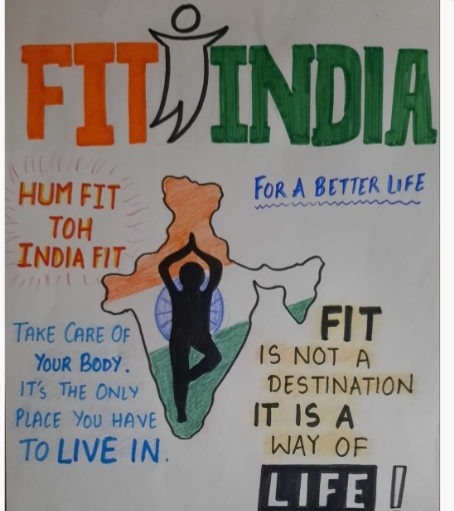 FIT INDIA
FOR A BETTER LIFE
HUM FIT
TOH
INDIA FIT
TAKE CARE OF
YOUR BODY.
IT'S THE ONLY
PLACE YOU HAVE
TO LIVE IN.
FIT
IS NOT A
DESTINATION
IT IS A
WAY OF
LIFE!